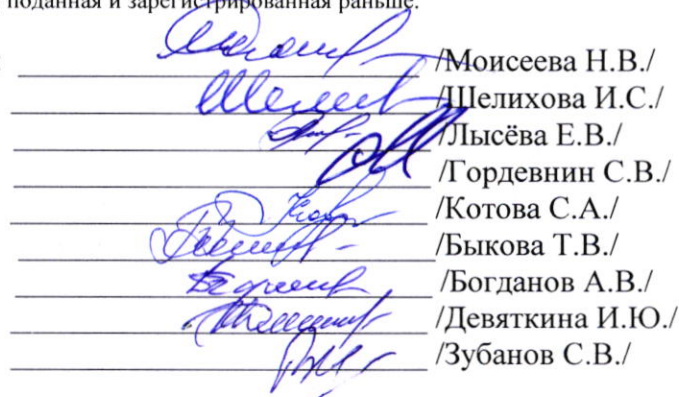 поданная и зарегистрированная раньше.
/Моисеева Н.В./
/Шелихова И.С./
/Лысёва Е.В./
/Гордевнин С.В./
/Котова С.А./
/Быкова Т.В./
/Богданов А.В./
/Девяткина И.Ю./
/Зубанов С.В./